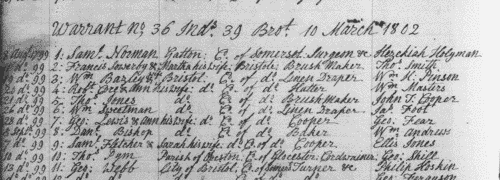 Warrant no 36 Inds. 39 Brot. 10 March 1802
99 1: Saml. Norman Yatton Co. of Somerset Surgeon & Hezekiah Holyman
do. 99 2: Francis & Martha his wife Bristole Brush Maker Thos. Smith
do. 99 3: Wm. Bazley & Bristol Co. of do. Linen Draper Wm. K. Pinson
do. 99 4: Robt. & Ann his wife do. Co. of do. Hatter Wm. Masters
do. 99 5: Thos. Jones do. Co. of do. Brush Maker John T. Cooper
do. 99 6: Wm. do. Co. of do. Linen Draper Jas. Foot
do. 99 7: Geo. Lewis & Ann his wife do. Co. of do. Cooper Geo. Fear
Sept. 99 8: Danl. Bishop do. Co. of do. Baker Wm. Andrews
do. 99 9: Saml. Fletcher & Sarah his wife do. Co. of do. Cooper Ellis Jones
do. 99 10: Thos. Pym Parish of Co. of Glocester Cordwainer Geo. Shell
do. 99 11: Geo. Webb City of Bristol Co. of Turner &c. Philip Hoskin
Geo. Ferguson